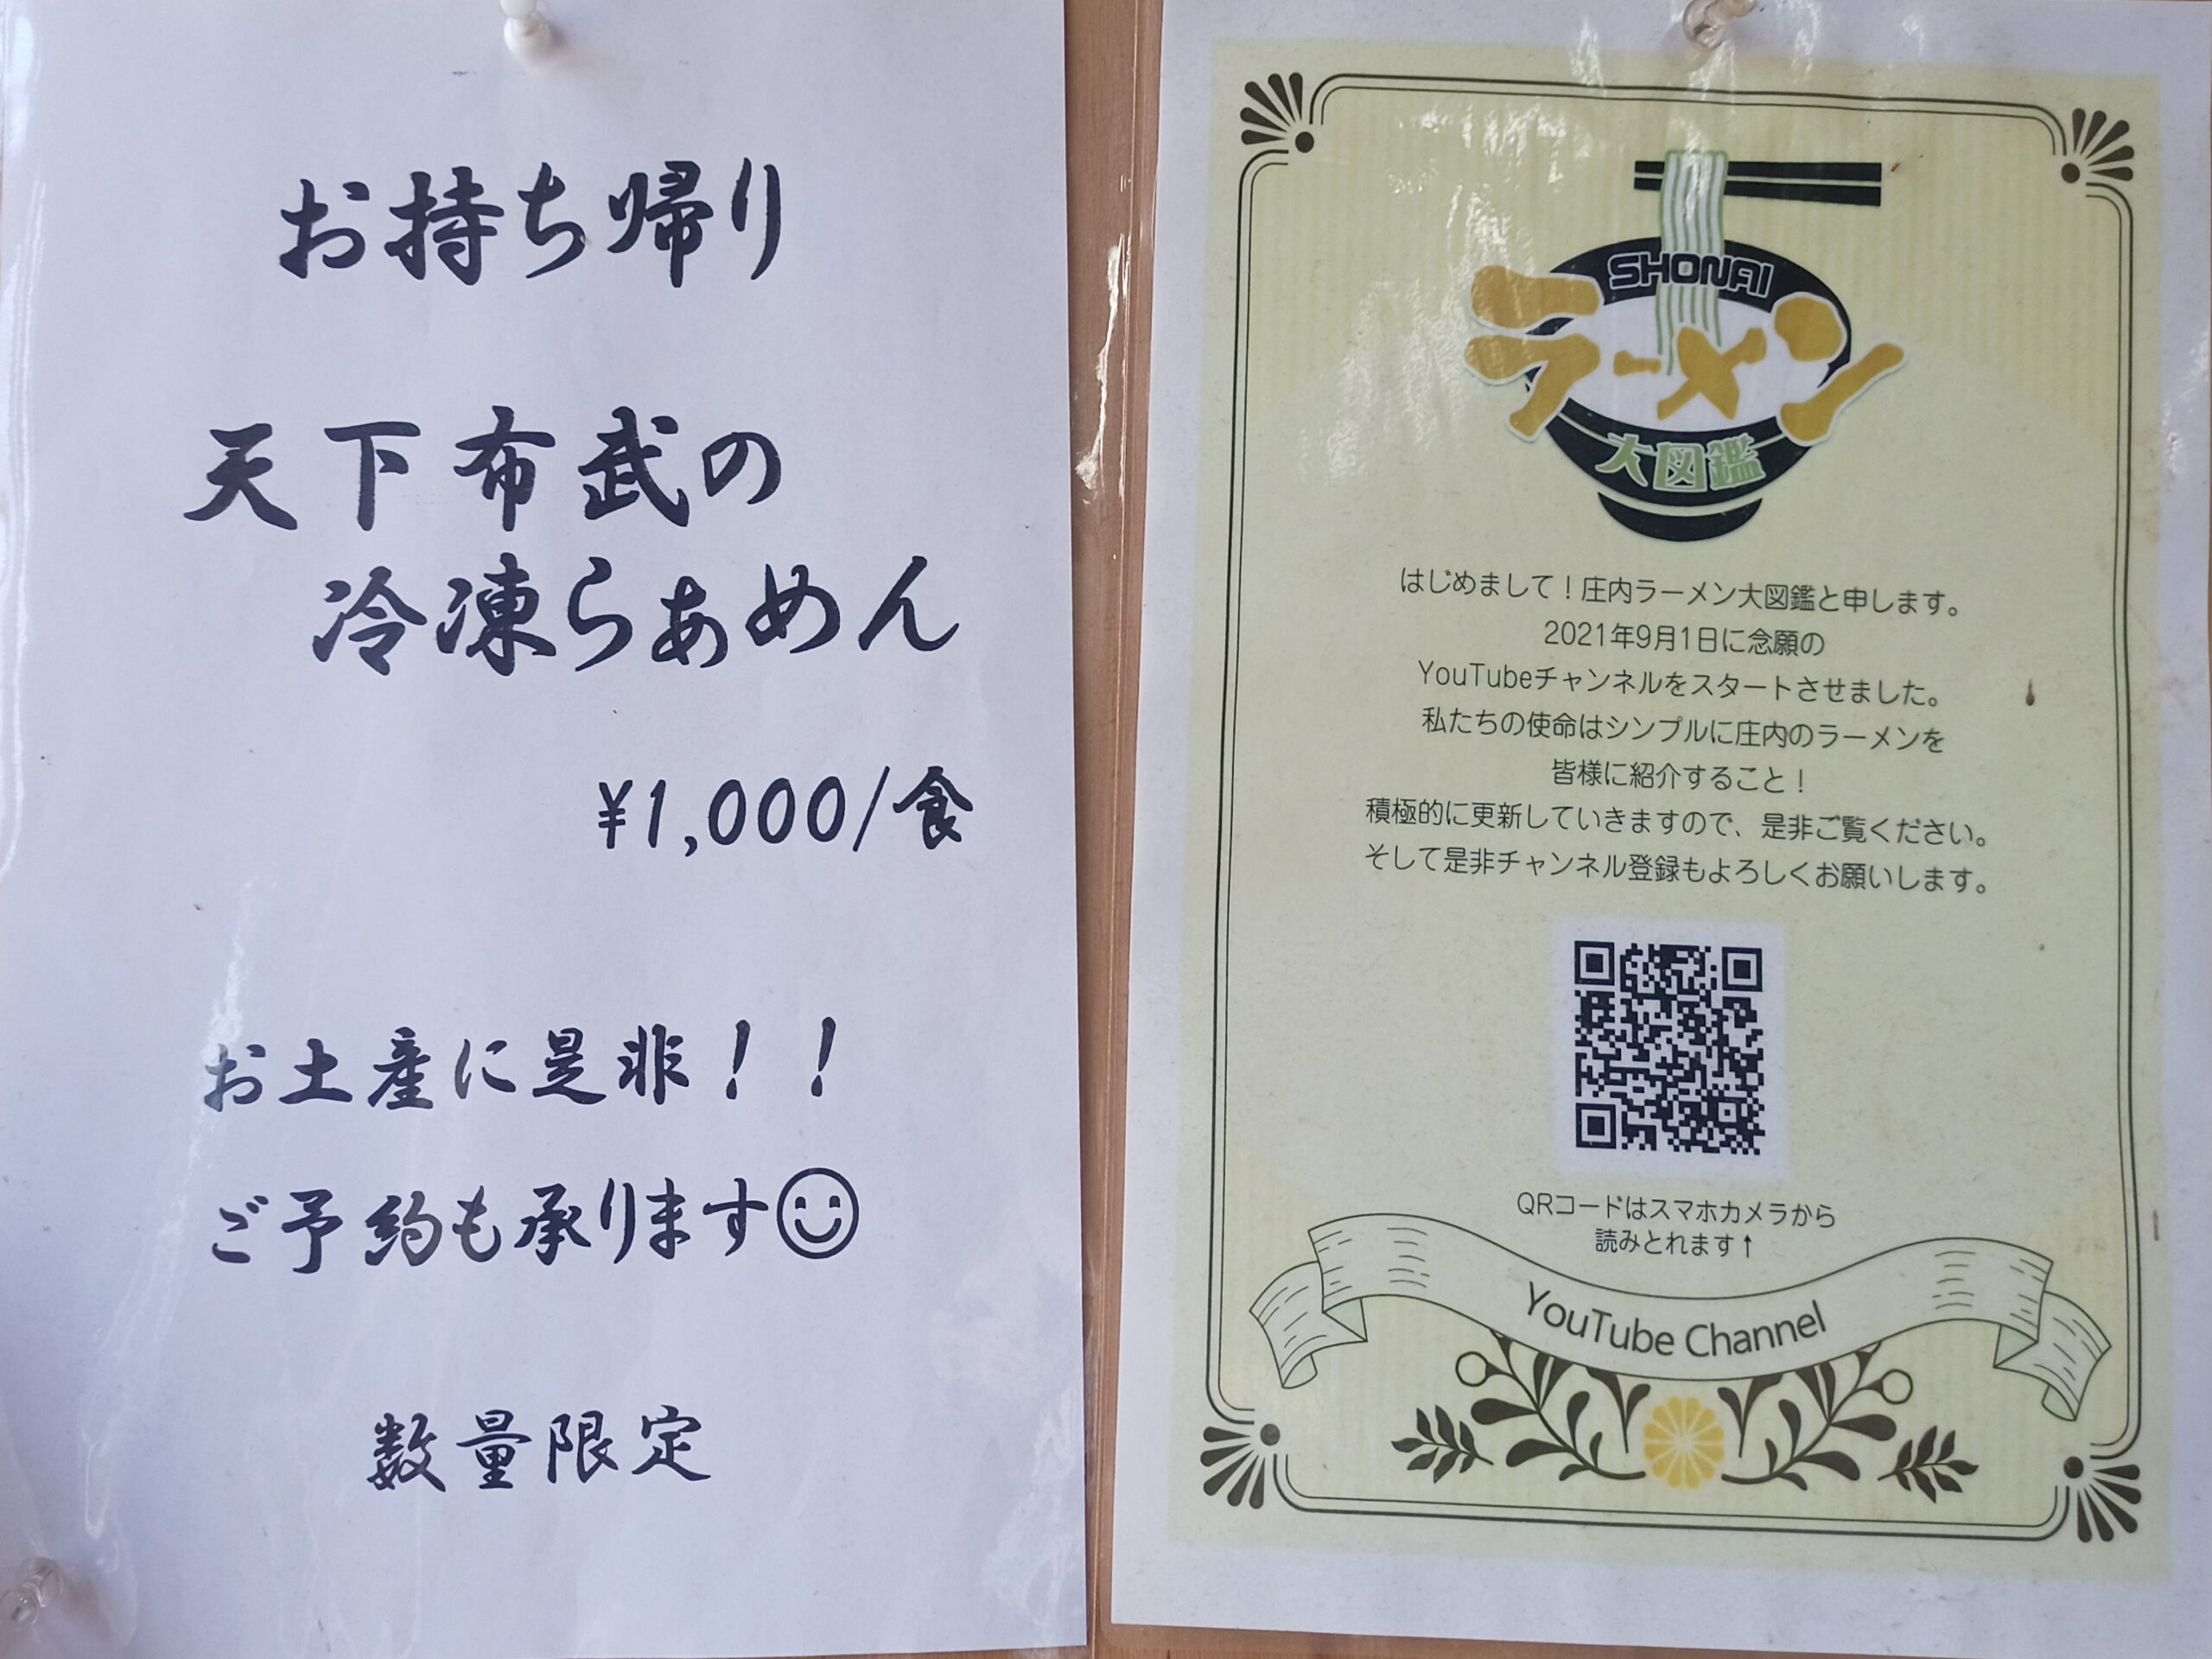 お持ち帰り
天下布武の
冷凍らぁめん
¥1,000/食
お土産に是非！！
ご予約も承ります☺
数量限定
SHONAI
ラーメン
大図鑑
はじめまして！庄内ラーメン大図鑑と申します。
2021年9月1日に念願の
YouTubeチャンネルをスタートさせました。
私たちの使命はシンプルに庄内のラーメンを
皆様に紹介すること！
積極的に更新していきますので、是非ご覧ください。
そして是非チャンネル登録もよろしくお願いします。
QRコードはスマホカメラから
読みとれます↑
YouTube Channel